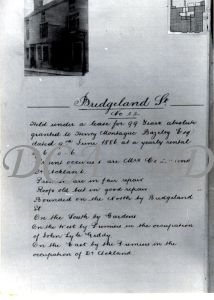 Bridgeland St
No 12
Held under a lease for 99 Years absolute
granted to Henry Montague Bazeley Esq
dated 9th June 1886 at a yearly rental
are Miss
Dr Ackland
are in fair repair
Roofs old but in good repair
Bounded on the North by Bridgeland
St
On the South by Gardens
On the West by Premises in the occupation
of John Lyle Giddy
On the East by the Premises in the
occupation of Dr Ackland